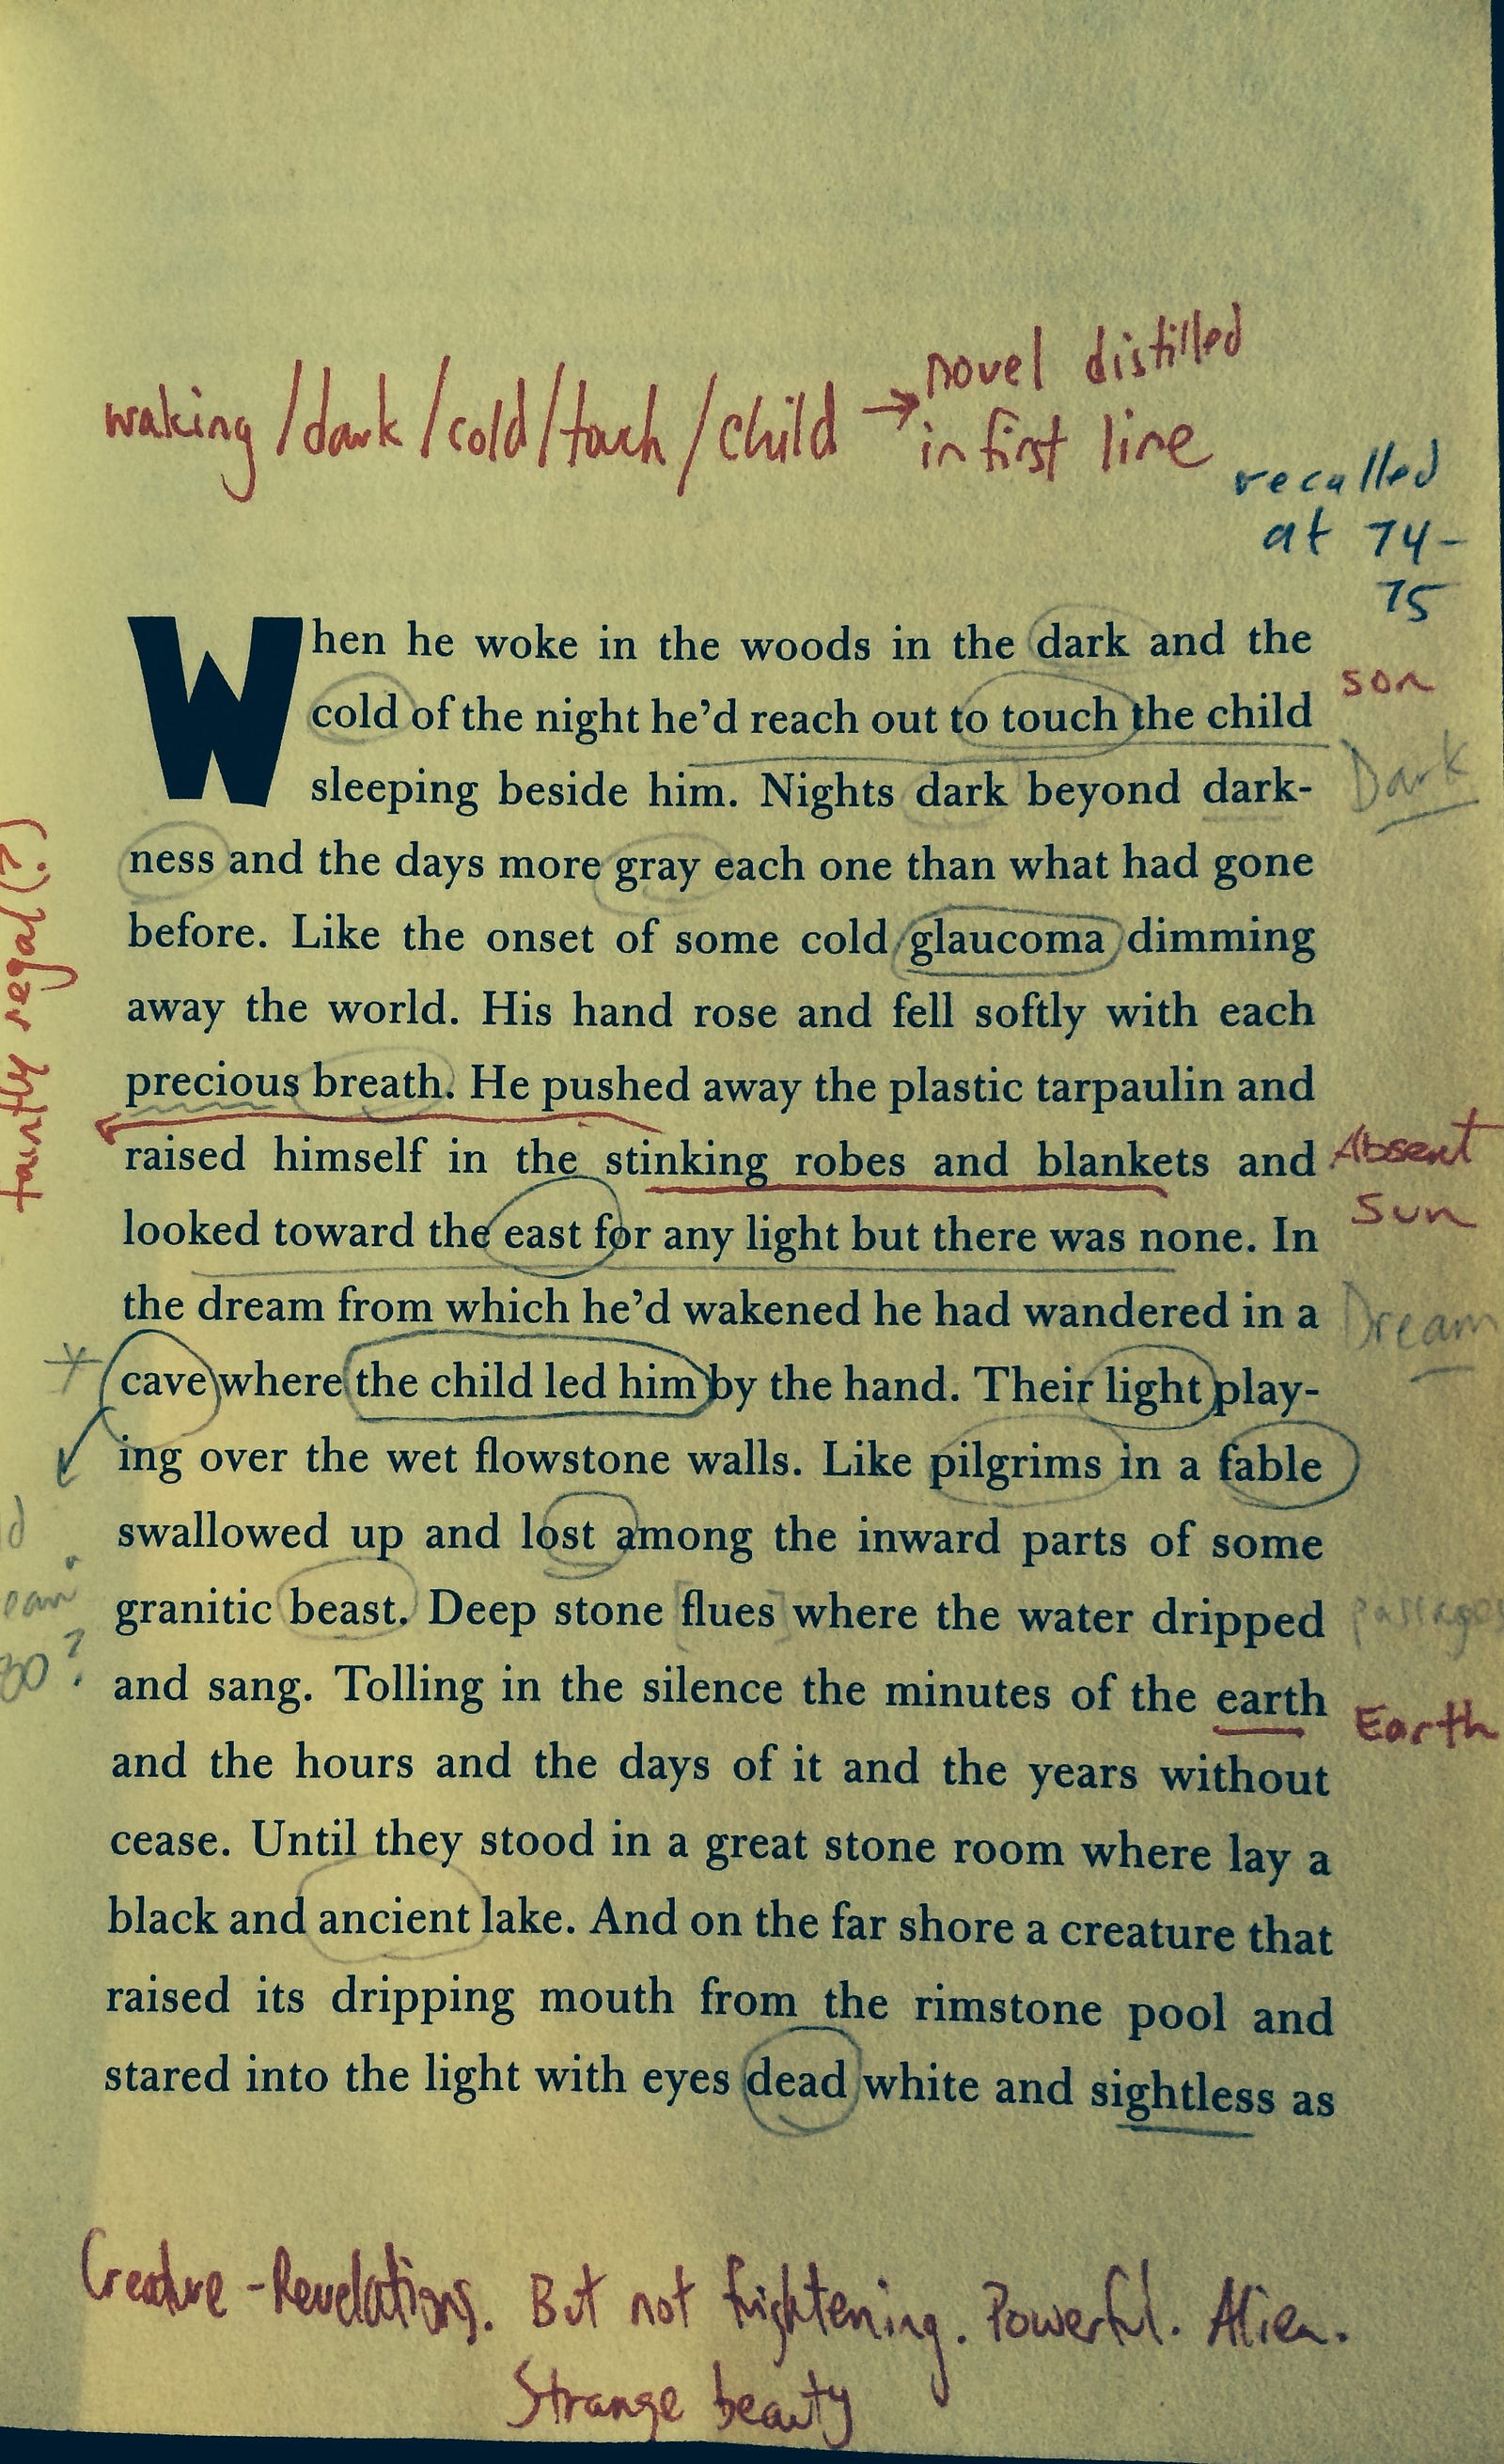 waking/dark/cold/touch/child → novel distilled
in first line
recalled
at 74-
75
When he woke in the woods in the dark and the
cold of the night he'd reach out to touch the child
son
sleeping beside him. Nights dark beyond dark-
Dark
ness and the days more gray each one than what had gone
before. Like the onset of some cold glaucoma dimming
away the world. His hand rose and fell softly with each
faintly regal (?)
precious breath. He pushed away the plastic tarpaulin and
raised himself in the stinking robes and blankets and
Absent
Sun
looked toward the east for any light but there was none. In
the dream from which he'd wakened he had wandered in a
Dream
cave where the child led him by the hand. Their light play-
ing over the wet flowstone walls. Like pilgrims in a fable
swallowed up and lost among the inward parts of some
granitic beast. Deep stone flues where the water dripped
and sang. Tolling in the silence the minutes of the earth
Earth
and the hours and the days of it and the years without
cease. Until they stood in a great stone room where lay a
black and ancient lake. And on the far shore a creature that
raised its dripping mouth from the rimstone pool and
stared into the light with eyes dead white and sightless as
Creature - Revelations. But not frightening. Powerful. Alien.
Strange beauty